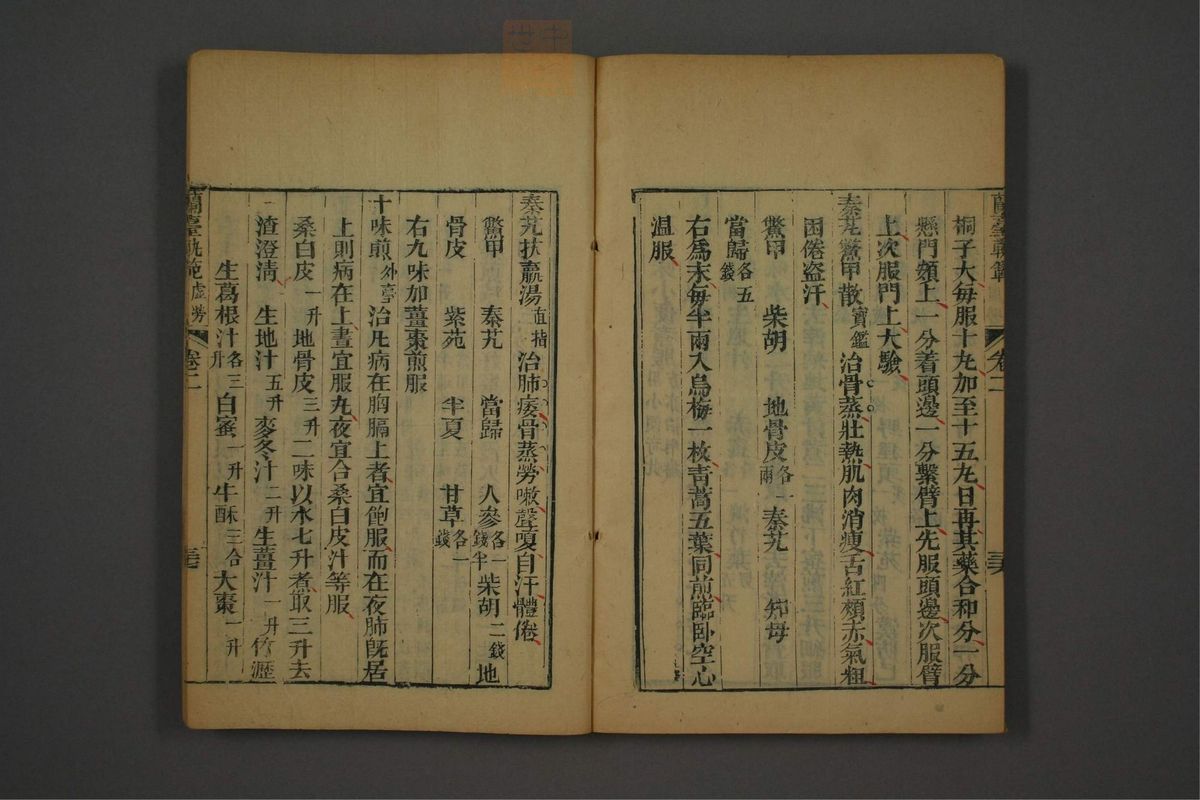 蘭臺軌範
卷二
三六
桐子大每服十丸加至十五丸日再其藥合和分一分
懸門額上一分着頭邊一分繫臂上先服頭邊次服臂
上次服門上大驗
秦艽鱉甲散寶鑑治骨蒸壯熱肌肉消瘦舌紅頰赤氣粗
困倦盗汗
鱉甲 柴胡 地骨皮各一兩 秦艽 知母
當歸各五錢
右爲末每半兩入烏梅一枚青蒿五葉同前臨卧空心
温服
秦艽扶羸湯直指治肺痿骨蒸勞嗽聲嗄自汗體倦
鱉甲 秦艽 當歸 人參各一錢半 柴胡二錢 地
骨皮 紫苑 半夏 甘草各一錢
右九味加薑棗煎服
十味煎外臺治凡病在胸膈上者宜飽服而在夜肺旣居
上則病在上晝宜服丸夜宜合桑白皮汁等服
桑白皮一升 地骨皮三升二味以水七升煮取三升去
渣澄清 生地汁五升 麥冬汁二升 生薑汁一升 竹瀝
生葛根汁各三升 白蜜一升 牛酥三合 大棗一升
蘭臺軌範 虛勞
卷二
三七